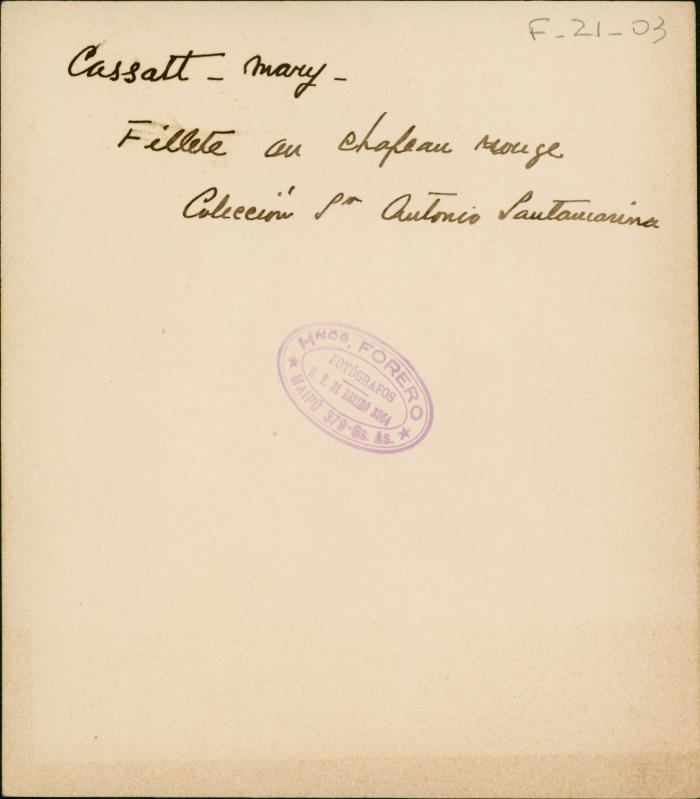 F-21-03
Cassatt - Mary -
Fillete au chapeau rouge
Colección Sr Antonio Santamarina
Hnos. FORERO
FOTÓGRAFOS
U. T. 31 RETIRO 3864
MAIPÚ 379-Bs. As.